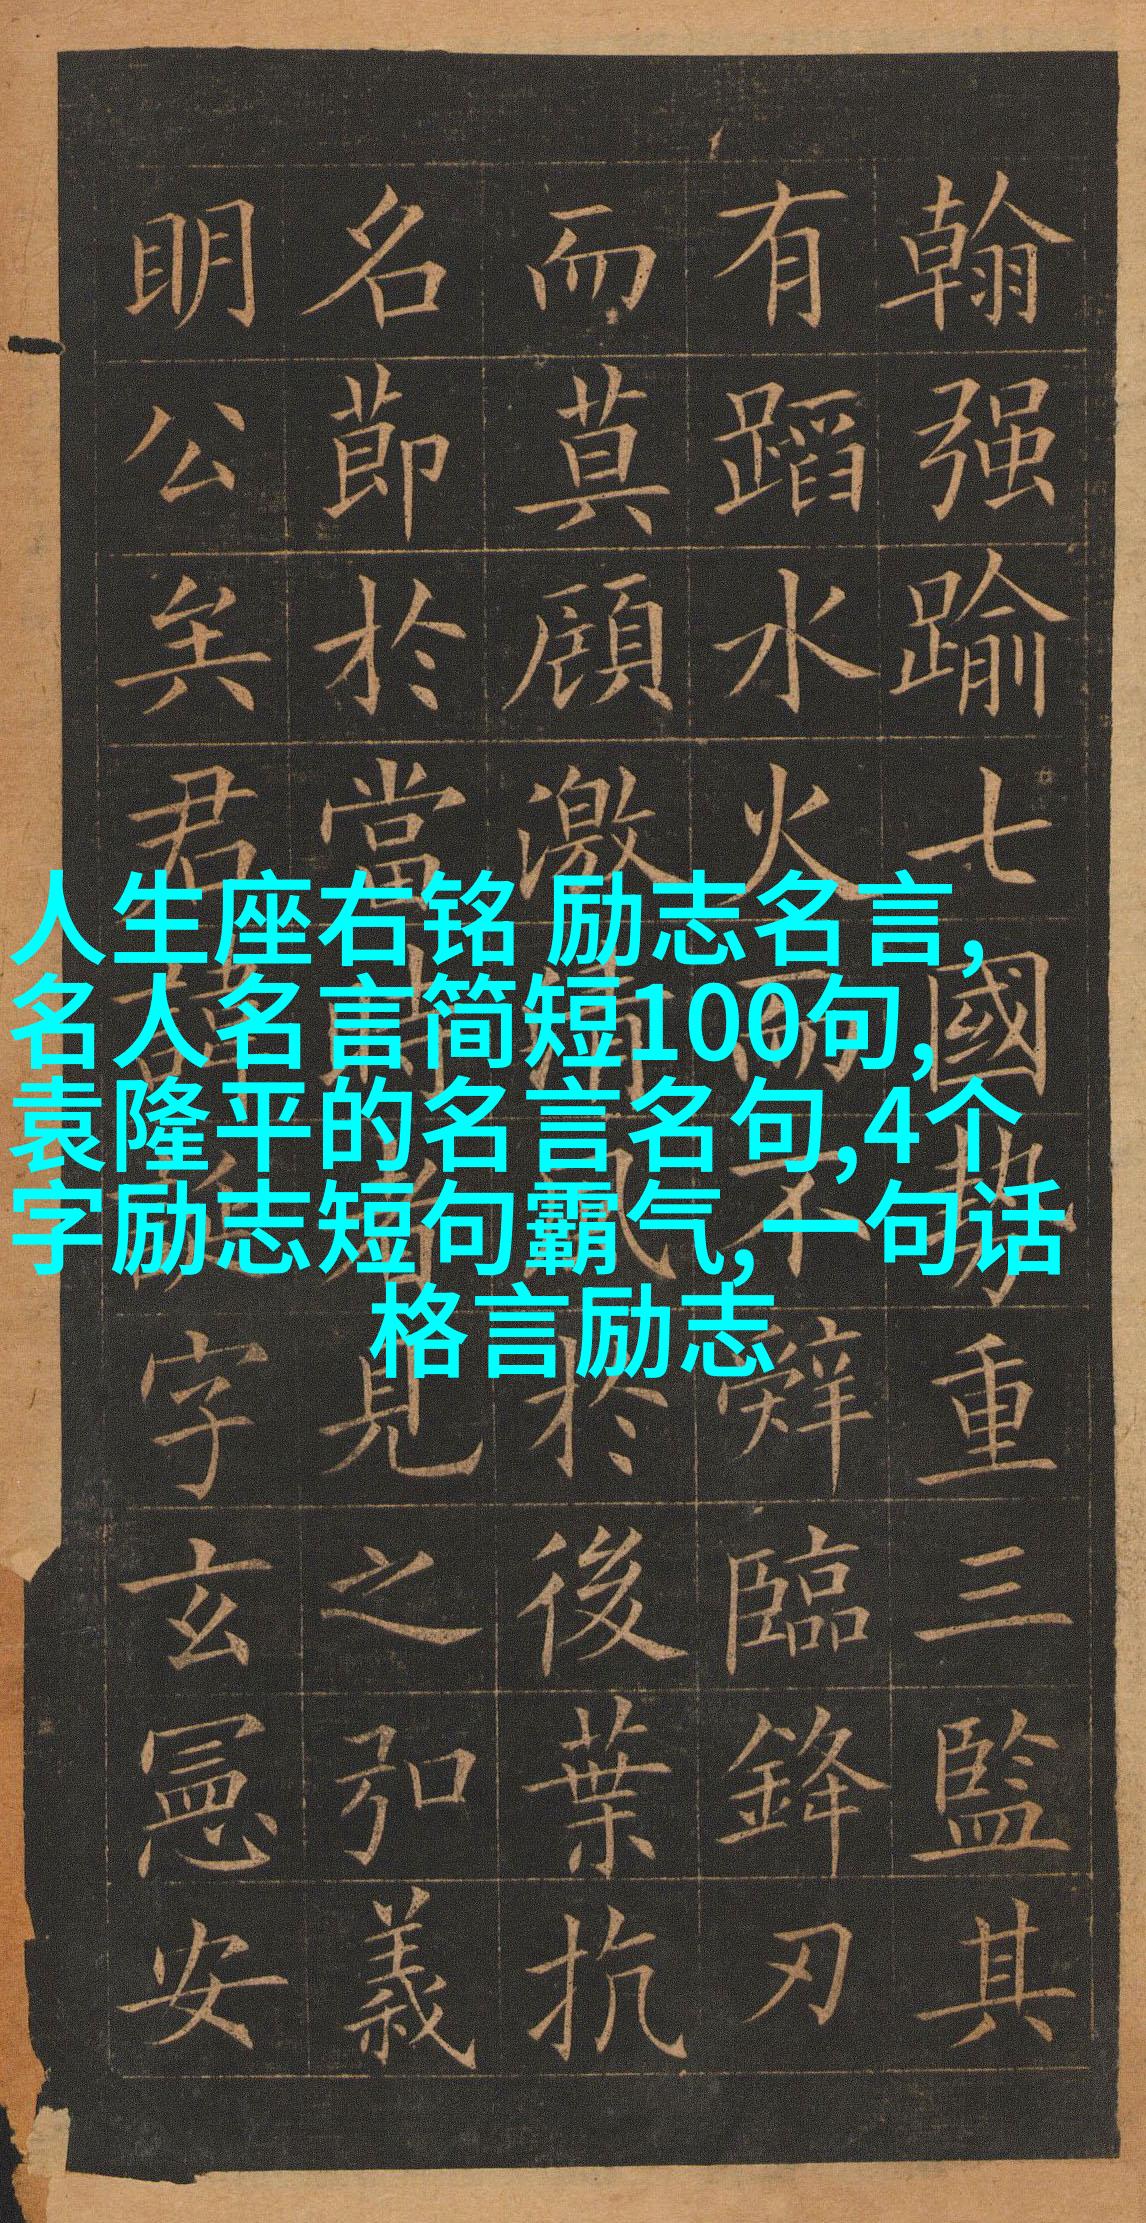 翰强踰七國勢重三監其
有蹈水火而不辭臨鋒刃
而莫顧激清風於後葉抗
名節於當時者見之弘義
明公矣君諱誕字玄憲安
人生座右铭 励志名言,
名人名言简短100句,
袁隆平的名言名句,4个
字励志短句霸气,一句话
格言励志